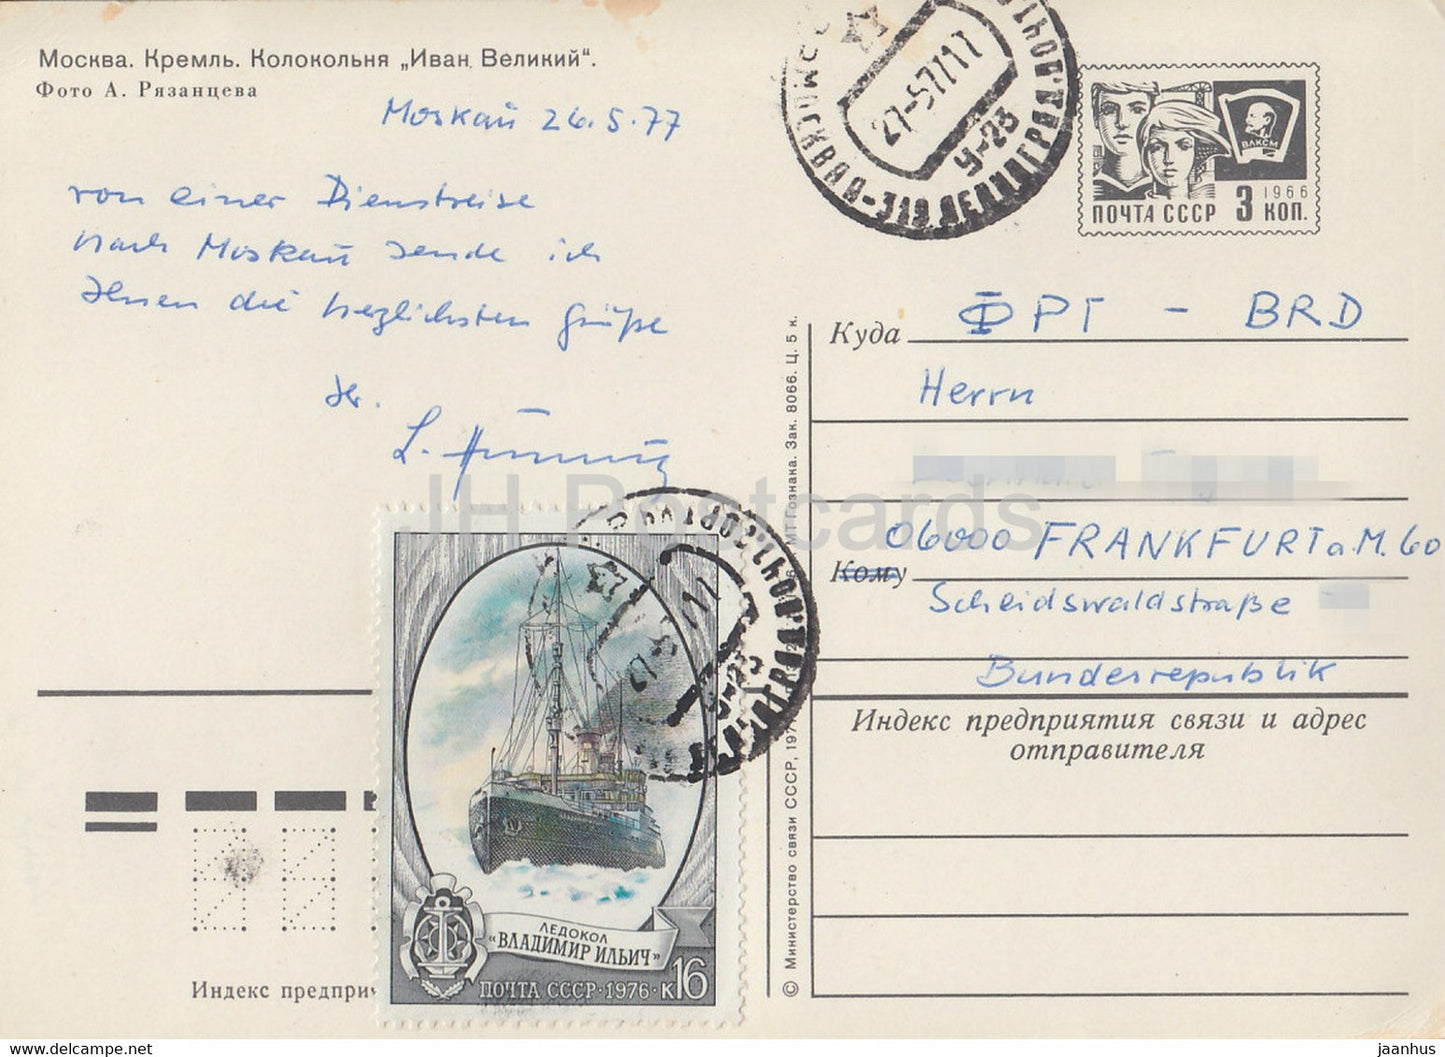 Москва. Кремль. Колокольня „Иван Великий“.
Фото А. Рязанцева
Moskau 26.5.77
von einer Dienstreise
nach Moskau sende ich
Ihnen die herzlichsten Grüße
Ihr.
L.
27-5 77 17
У-23
МОСКВА А-319, ЛЕНИНГРАД
ВЛКСМ
1966
ПОЧТА СССР 3 КОП.
Куда
ФРГ - BRD
Herrn
06000 FRANKFURT a.M. 60
Кому
Scheidswaldstraße
Bundesrepublik
Индекс предприятия связи и адрес
отправителя
© Министерство связи СССР, 197
МТ Гознака. Зак. 8066. Ц. 5 к.
ЛЕДОКОЛ
«ВЛАДИМИР ИЛЬИЧ»
ПОЧТА СССР·1976·К16
Индекс предприч
JH Postcards
https://www.hippostcard.com/store/jaanhus
jaanhus